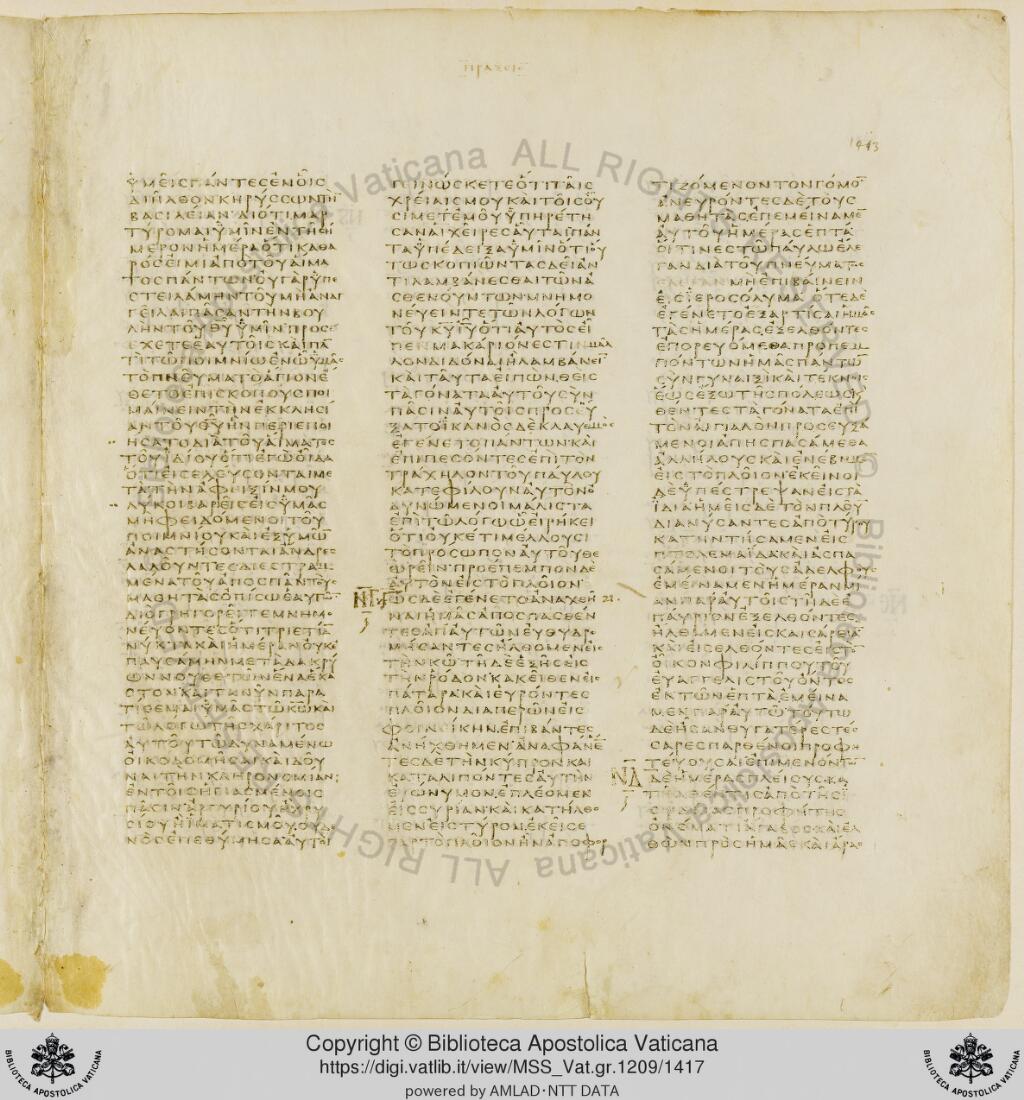 ΠΡΑΞΕΙΣ
1443
ΥΜΕΙΣΠΑΝΤΕΣΕΝΟΙΣ
ΔΙΗΛΘΟΝΚΗΡΥΣΣΩΝΤΗΝ
ΒΑΣΙΛΕΙΑΝΔΙΟΤΙΜΑΡ
ΤΥΡΟΜΑΙΥΜΙΝΕΝΤΗΣΗ
ΜΕΡΟΝΗΜΕΡΑΟΤΙΚΑΘΑ
ΡΟΣΕΙΜΙΑΠΟΤΟΥΑΙΜΑ
ΤΟΣΠΑΝΤΩΝΟΥΓΑΡΥΠΕ
ΣΤΕΙΛΑΜΗΝΤΟΥΜΗΑΝΑΓ
ΓΕΙΛΑΙΠΑΣΑΝΤΗΝΒΟΥ
ΛΗΝΤΟΥΘΥΥΜΙΝΠΡΟΣΕ
ΕΧΕΤΕΕΑΥΤΟΙΣΚΑΙΠΑ
ΤΙΤΩΠΟΙΜΝΙΩΕΝΩΥΜΑΣ
ΤΟΠΝΕΥΜΑΤΟΑΓΙΟΝΕ
ΘΕΤΟΕΠΙΣΚΟΠΟΥΣΠΟΙ
ΜΑΙΝΕΙΝΤΗΝΕΚΚΛΗΣΙ
ΑΝΤΟΥΘΥΗΝΠΕΡΙΕΠΟΙ
ΗΣΑΤΟΔΙΑΤΟΥΑΙΜΑΤΟΣ
ΤΟΥΙΔΙΟΥΟΤΙΕΓΩΟΙΔΑ
ΟΤΙΕΙΣΕΛΕΥΣΟΝΤΑΙΜΕ
ΤΑΤΗΝΑΦΕΙΞΙΝΜΟΥ
ΛΥΚΟΙΒΑΡΕΙΣΕΙΣΥΜΑΣ
ΜΗΦΕΙΔΟΜΕΝΟΙΤΟΥ
ΠΟΙΜΝΙΟΥΚΑΙΕΞΥΜΩ
ΑΝΑΣΤΗΣΟΝΤΑΙΑΝΔΡΕΣ
ΛΑΛΟΥΝΤΕΣΔΙΕΣΤΡΑΜ
ΜΕΝΑΤΟΥΑΠΟΣΠΑΝΤΟΥΣ
ΜΑΘΗΤΑΣΟΠΙΣΩΕΑΥΤΩ
ΔΙΟΓΡΗΓΟΡΕΙΤΕΜΝΗΜΟ
ΝΕΥΟΝΤΕΣΟΤΙΤΡΙΕΤΙΑ
ΝΥΚΤΑΚΑΙΗΜΕΡΑΝΟΥΚΕ
ΠΑΥΣΑΜΗΝΜΕΤΑΔΑΚΡΥ
ΩΝΝΟΥΘΕΤΩΝΕΝΑΕΚΑ
ΣΤΟΝΚΑΙΤΑΝΥΝΠΑΡΑ
ΤΙΘΕΜΑΙΥΜΑΣΤΩΚΩΚΑΙ
ΤΩΛΟΓΩΤΗΣΧΑΡΙΤΟΣ
ΑΥΤΟΥΤΩΔΥΝΑΜΕΝΩ
ΟΙΚΟΔΟΜΗΣΑΙΚΑΙΔΟΥ
ΝΑΙΤΗΝΚΛΗΡΟΝΟΜΙΑΝ
ΕΝΤΟΙΣΗΓΙΑΣΜΕΝΟΙΣ
ΠΑΣΙΝΑΡΓΥΡΙΟΥΗΧΡΥ
ΣΙΟΥΗΙΜΑΤΙΣΜΟΥΟΥΔΕ
ΝΟΣΕΠΕΘΥΜΗΣΑΑΥΤΟΙ
ΓΕΙΝΩΣΚΕΤΕΟΤΙΤΑΙΣ
ΧΡΕΙΑΙΣΜΟΥΚΑΙΤΟΙΣΟΥ
ΣΙΜΕΤΕΜΟΥΥΠΗΡΕΤΗ
ΣΑΝΑΙΧΕΙΡΕΣΑΥΤΑΙΠΑΝ
ΤΑΥΠΕΔΕΙΞΑΥΜΙΝΟΤΙΟΥ
ΤΩΣΚΟΠΙΩΝΤΑΣΔΕΙΑΝ
ΤΙΛΑΜΒΑΝΕΣΘΑΙΤΩΝΑ
ΣΘΕΝΟΥΝΤΩΝΜΝΗΜΟ
ΝΕΥΕΙΝΤΕΤΩΝΛΟΓΩΝ
ΤΟΥΚΥΙΥΟΤΙΑΥΤΟΣΕΙ
ΠΕΝΜΑΚΑΡΙΟΝΕΣΤΙΝΜΑΛ
ΛΟΝΔΙΔΟΝΑΙΗΛΑΜΒΑΝΕΙ
ΚΑΙΤΑΥΤΑΕΙΠΩΝΘΕΙΣ
ΤΑΓΟΝΑΤΑΑΥΤΟΥΣΥΝ
ΠΑΣΙΝΑΥΤΟΙΣΠΡΟΣΕΥ
ΞΑΤΟΙΚΑΝΟΣΔΕΚΛΑΥΘΜΟΣ
ΕΓΕΝΕΤΟΠΑΝΤΩΝΚΑΙ
ΕΠΙΠΕΣΟΝΤΕΣΕΠΙΤΟΝ
ΤΡΑΧΗΛΟΝΤΟΥΠΑΥΛΟΥ
ΚΑΤΕΦΙΛΟΥΝΑΥΤΟΝΟ
ΔΥΝΩΜΕΝΟΙΜΑΛΙΣΤΑ
ΕΠΙΤΩΛΟΓΩΩΕΙΡΗΚΕΙ
ΟΤΙΟΥΚΕΤΙΜΕΛΛΟΥΣΙ
ΤΟΠΡΟΣΩΠΟΝΑΥΤΟΥΘΕ
ΩΡΕΙΝΠΡΟΕΠΕΜΠΟΝΔΕ
ΑΥΤΟΝΕΙΣΤΟΠΛΟΙΟΝ
ΩΣΔΕΕΓΕΝΕΤΟΑΝΑΧΘΗ 21.
ΝΑΙΗΜΑΣΑΠΟΣΠΑΣΘΕΝ
ΤΕΣΑΠΑΥΤΩΝΕΥΘΥΔΡΟ
ΜΗΣΑΝΤΕΣΗΛΘΟΜΕΝΕΙΣ
ΤΗΝΚΩΤΗΔΕΕΞΗΣΕΙΣ
ΤΗΝΡΟΔΟΝΚΑΚΕΙΘΕΝΕΙΣ
ΠΑΤΑΡΑΚΑΙΕΥΡΟΝΤΕΣ
ΠΛΟΙΟΝΔΙΑΠΕΡΩΝΕΙΣ
ΦΟΙΝΕΙΚΗΝΕΠΙΒΑΝΤΕΣ
ΑΝΗΧΘΗΜΕΝΑΝΑΦΑΝΕ
ΤΕΣΔΕΤΗΝΚΥΠΡΟΝΚΑΙ
ΚΑΤΑΛΙΠΟΝΤΕΣΑΥΤΗΝ
ΕΥΩΝΥΜΟΝΕΠΛΕΟΜΕΝ
ΕΙΣΣΥΡΙΑΝΚΑΙΚΑΤΗΛΘΟ
ΜΕΝΕΙΣΤΥΡΟΝΕΚΕΙΣΕ
ΓΑΡΤΟΠΛΟΙΟΝΗΝΑΠΟΦΟΡ
ΤΙΖΟΜΕΝΟΝΤΟΝΓΟΜΟ
ΑΝΕΥΡΟΝΤΕΣΔΕΤΟΥΣ
ΜΑΘΗΤΑΣΕΠΕΜΕΙΝΑΜΕ
ΑΥΤΟΥΗΜΕΡΑΣΕΠΤΑ
ΟΙΤΙΝΕΣΤΩΠΑΥΛΩΕΛΕ
ΓΑΝΔΙΑΤΟΥΠΝΕΥΜΑΤΟΣ
ΜΗΕΠΙΒΑΙΝΕΙΝ
ΕΙΣΙΕΡΟΣΟΛΥΜΑΟΤΕΔΕ
ΕΓΕΝΕΤΟΕΞΑΡΤΙΣΑΙΗΜΑΣ
ΤΑΣΗΜΕΡΑΣΕΞΕΛΘΟΝΤΕΣ
ΕΠΟΡΕΥΟΜΕΘΑΠΡΟΠΕΜ
ΠΟΝΤΩΝΗΜΑΣΠΑΝΤΩ
ΣΥΝΓΥΝΑΙΞΙΚΑΙΤΕΚΝΟΙΣ
ΕΩΣΕΞΩΤΗΣΠΟΛΕΩΣΚ
ΘΕΝΤΕΣΤΑΓΟΝΑΤΑΕΠΙ
ΤΟΝΑΙΓΙΑΛΟΝΠΡΟΣΕΥΞΑ
ΜΕΝΟΙΑΠΗΣΠΑΣΑΜΕΘΑ
ΑΛΛΗΛΟΥΣΚΑΙΕΝΕΒΗΜΕ
ΕΙΣΤΟΠΛΟΙΟΝΕΚΕΙΝΟΙ
ΔΕΥΠΕΣΤΡΕΨΑΝΕΙΣΤΑ
ΙΔΙΑΗΜΕΙΣΔΕΤΟΝΠΛΟΥ
ΔΙΑΝΥΣΑΝΤΕΣΑΠΟΤΥΡΟΥ
ΚΑΤΗΝΤΗΣΑΜΕΝΕΙΣ
ΠΤΟΛΕΜΑΙΔΑΚΑΙΑΣΠΑ
ΣΑΜΕΝΟΙΤΟΥΣΑΔΕΛΦΟΥΣ
ΕΜΕΙΝΑΜΕΝΗΜΕΡΑΝΜΙ
ΑΝΠΑΡΑΥΤΟΙΣΤΗΔΕΕ
ΠΑΥΡΙΟΝΕΞΕΛΘΟΝΤΕΣ
ΗΛΘΑΜΕΝΕΙΣΚΑΙΣΑΡΙΑ
ΚΑΙΕΙΣΕΛΘΟΝΤΕΣΕΙΣΤΟ
ΟΙΚΟΝΦΙΛΙΠΠΟΥΤΟΥ
ΕΥΑΓΓΕΛΙΣΤΟΥΟΝΤΟΣ
ΕΚΤΩΝΕΠΤΑΕΜΕΙΝΑ
ΜΕΝΠΑΡΑΥΤΩΤΟΥΤΩ
ΔΕΗΣΑΝΘΥΓΑΤΕΡΕΣΤΕΣ
ΣΑΡΕΣΠΑΡΘΕΝΟΙΠΡΟΦΗ
ΤΕΥΟΥΣΑΙΕΠΙΜΕΝΟΝΤΩ
ΔΕΗΜΕΡΑΣΠΛΕΙΟΥΣΚΑ
ΤΗΛΘΕΝΤΙΣΑΠΟΤΗΣΙ
ΟΥΔΑΙΑΣΠΡΟΦΗΤΗΣ
ΟΝΟΜΑΤΙΑΓΑΒΟΣΚΑΙΕΛ
ΘΩΝΠΡΟΣΗΜΑΣΚΑΙΑΡΑΣ
ΝΓ
ΝΔ
Vaticana ALL RIGHTS
Copyright © Biblioteca Apostolica Vaticana
https://digi.vatlib.it/view/MSS_Vat.gr.1209/1417
powered by AMLAD·NTT DATA
BIBLIOTECA APOSTOLICA VATICANA
BIBLIOTECA APOSTOLICA VATICANA